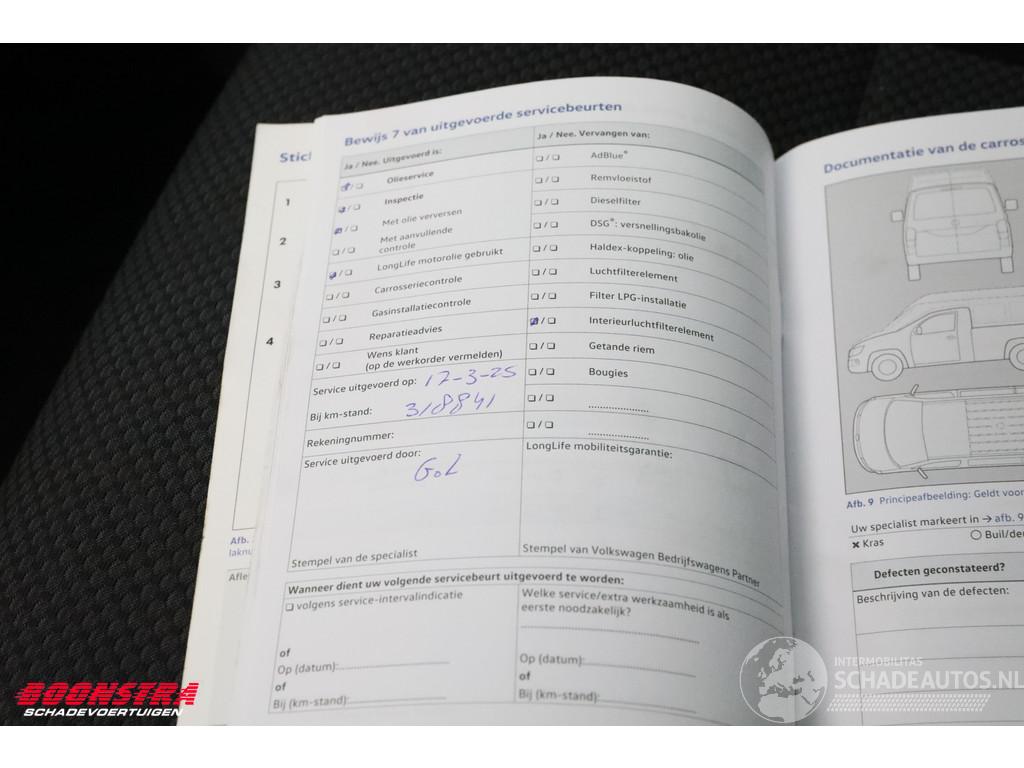 Stic
1
2
3
4
Afb.
laknu
Afle
Bewijs 7 van uitgevoerde servicebeurten
Ja / Nee. Uitgevoerd is:
Olieservice
Inspectie
Met olie verversen
Met aanvullende
controle
LongLife motorolie gebruikt
Carrosseriecontrole
Gasinstallatiecontrole
Reparatieadvies
Wens klant
(op de werkorder vermelden)
Service uitgevoerd op: 17-3-25
Bij km-stand: 318841
Rekeningnummer:
Service uitgevoerd door:
GoL
Stempel van de specialist
Ja / Nee. Vervangen van:
AdBlue®
Remvloeistof
Dieselfilter
DSG®: versnellingsbakolie
Haldex-koppeling: olie
Luchtfilterelement
Filter LPG-installatie
Interieurluchtfilterelement
Getande riem
Bougies
LongLife mobiliteitsgarantie:
Stempel van Volkswagen Bedrijfswagens Partner
Wanneer dient uw volgende servicebeurt uitgevoerd te worden:
volgens service-intervalindicatie
of
Op (datum):
of
Bij (km-stand):
Welke service/extra werkzaamheid is als
eerste noodzakelijk?
Op (datum):
of
Bij (km-stand):
Documentatie van de carros
Afb. 9 Principeafbeelding: Geldt voor
Uw specialist markeert in → afb. 9
Kras
Buil/de
Defecten geconstateerd?
Beschrijving van de defecten:
BOONSTRA
SCHADEVOERTUIGEN
INTERMOBILITAS
SCHADEAUTOS.NL